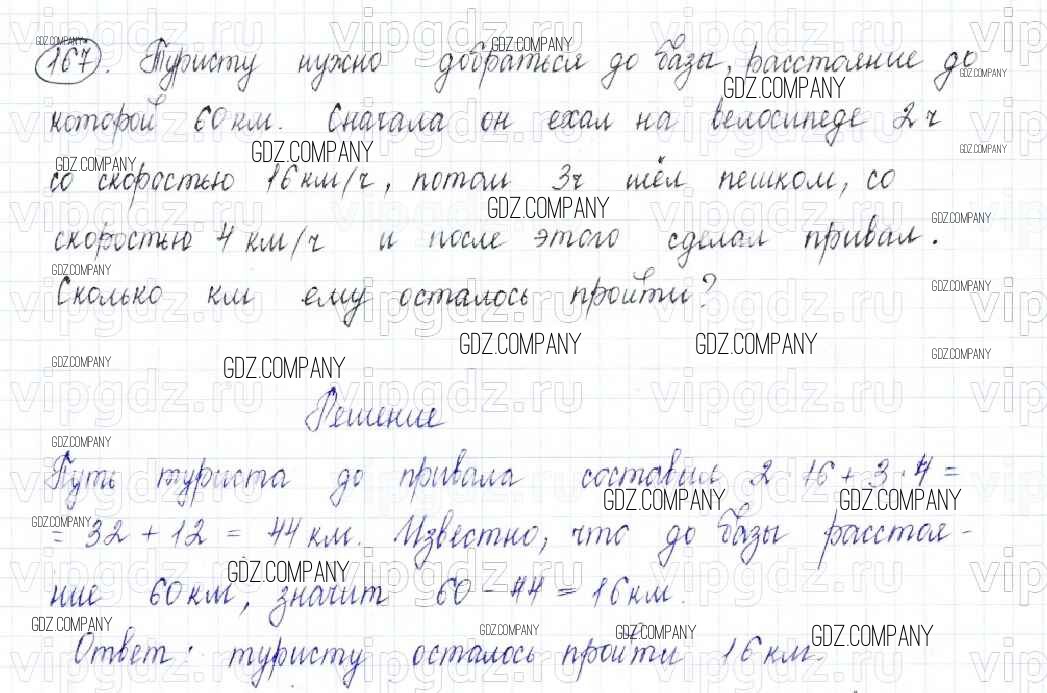 167. Туристу нужно добраться до базы, расстояние до
которой 60 км. Сначала он ехал на велосипеде 2 ч
со скоростью 16 км/ч, потом 3ч шёл пешком, со
скоростью 4 км/ч и после этого сделал привал.
Сколько км ему осталось пройти?
Решение
Путь туриста до привала составил 2 · 16 + 3 · 4 =
= 32 + 12 = 44 км. Известно, что до базы расстоя-
ние 60 км, значит 60 - 44 = 16 км.
Ответ: туристу осталось пройти 16 км.